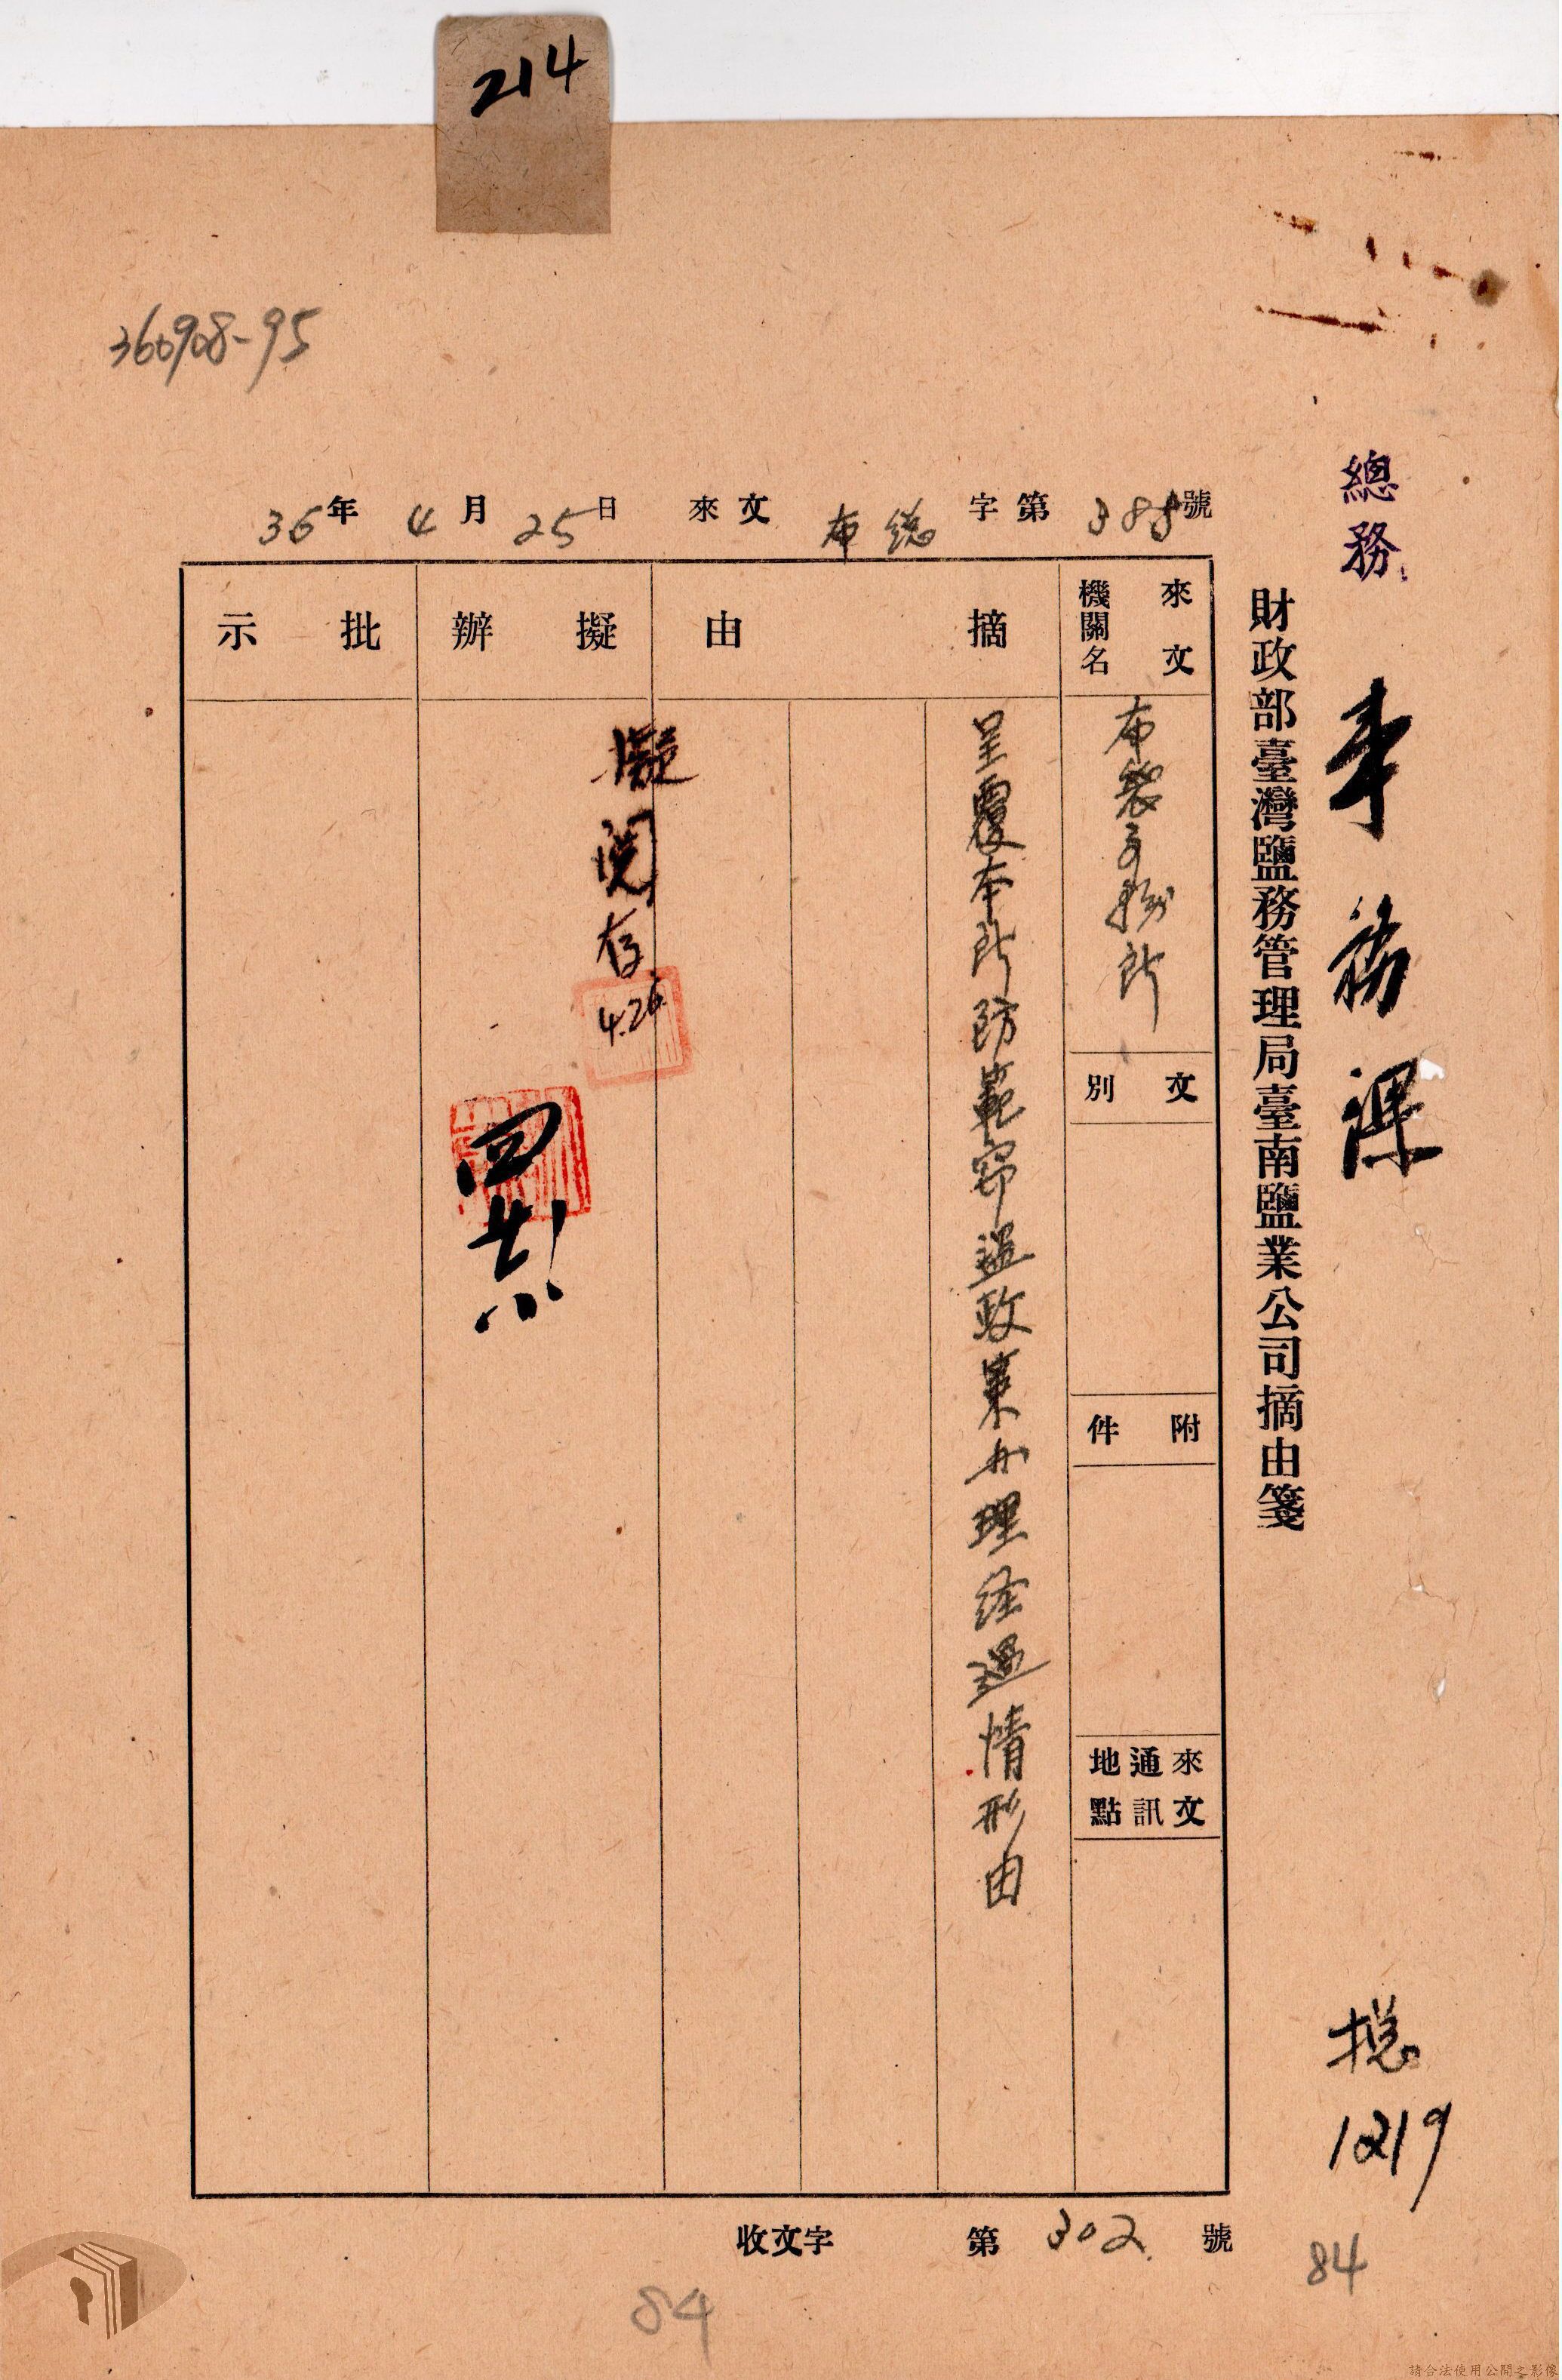 214
360908-95
總務
事務課
財政部臺灣鹽務管理局臺南鹽業公司摘由箋
36年4月25日來文布総字第388號
來文機關名
布袋事務所
文別
附件
來文通訊地點
摘由
呈覆本所防範窃盗政策办理経過情形由
擬辦
擬閱存
4.26
批示
收文字第302號
総
1219
84
84
請合法使用公開之影像